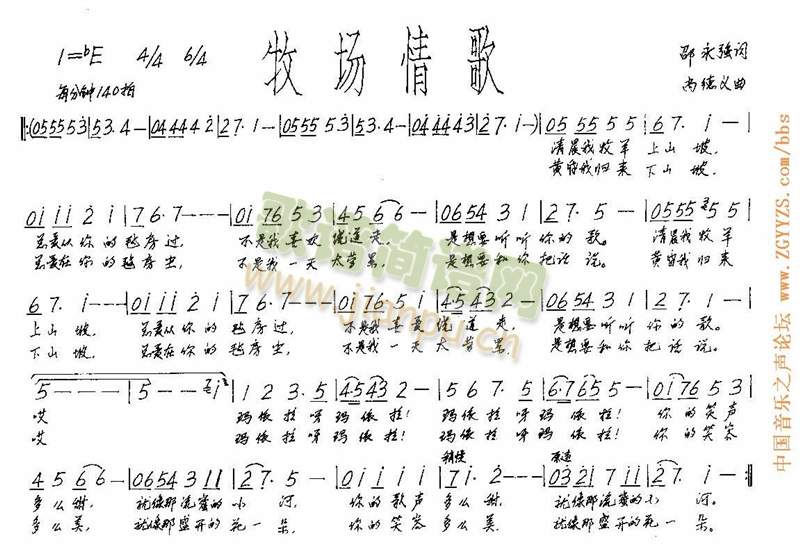 牧场情歌
1=♭E 4/4 6/4
邵永强词
每分钟140拍
尚德义曲
‖:(055553|53.4—|0444442|27.1—|055553|53.4—|0444443|27.1—)|0555555|67.1—|
清晨我牧羊 上山坡,
黄昏我归来 下山坡,
011121|76.7———|017653|4566—|065431|27.5—|0555555|
总爱从你的毡房过, 不是我喜欢绕道走, 是想要听听你的歌。 清晨我牧羊
总爱在你的毡房坐, 不是我一天太劳累, 是想要和你把话说。 黄昏我归来
67.1—|011121|76.7———|017651|45432—|065431|27.1—|
上山坡, 总爱从你的毡房过, 不是我喜欢绕道走, 是想要听听你的歌。
下山坡, 总爱在你的毡房坐, 不是我一天太劳累, 是想要和你把话说。
5———|5——1|123.5|45432—|567.5|6.7655—|017653|
哎 玛依拉呀玛依拉! 玛依拉呀玛依拉! 你的笑声
哎 玛依拉呀玛依拉! 玛依拉呀玛依拉! 你的笑容
稍慢 原速
4566—|0654311|27.5—|011111|71.2——|0321711|27.1—:‖
多么甜, 就像那流蜜的小河, 你的歌声多么甜, 就像那流蜜的小河。
多么美, 就像那盛开的花一朵, 你的笑容多么美, 就像那盛开的花一朵。
歌谱简谱网
www.jianpu.cn
中国音乐之声论坛 www.ZGYYZS.com/bbs